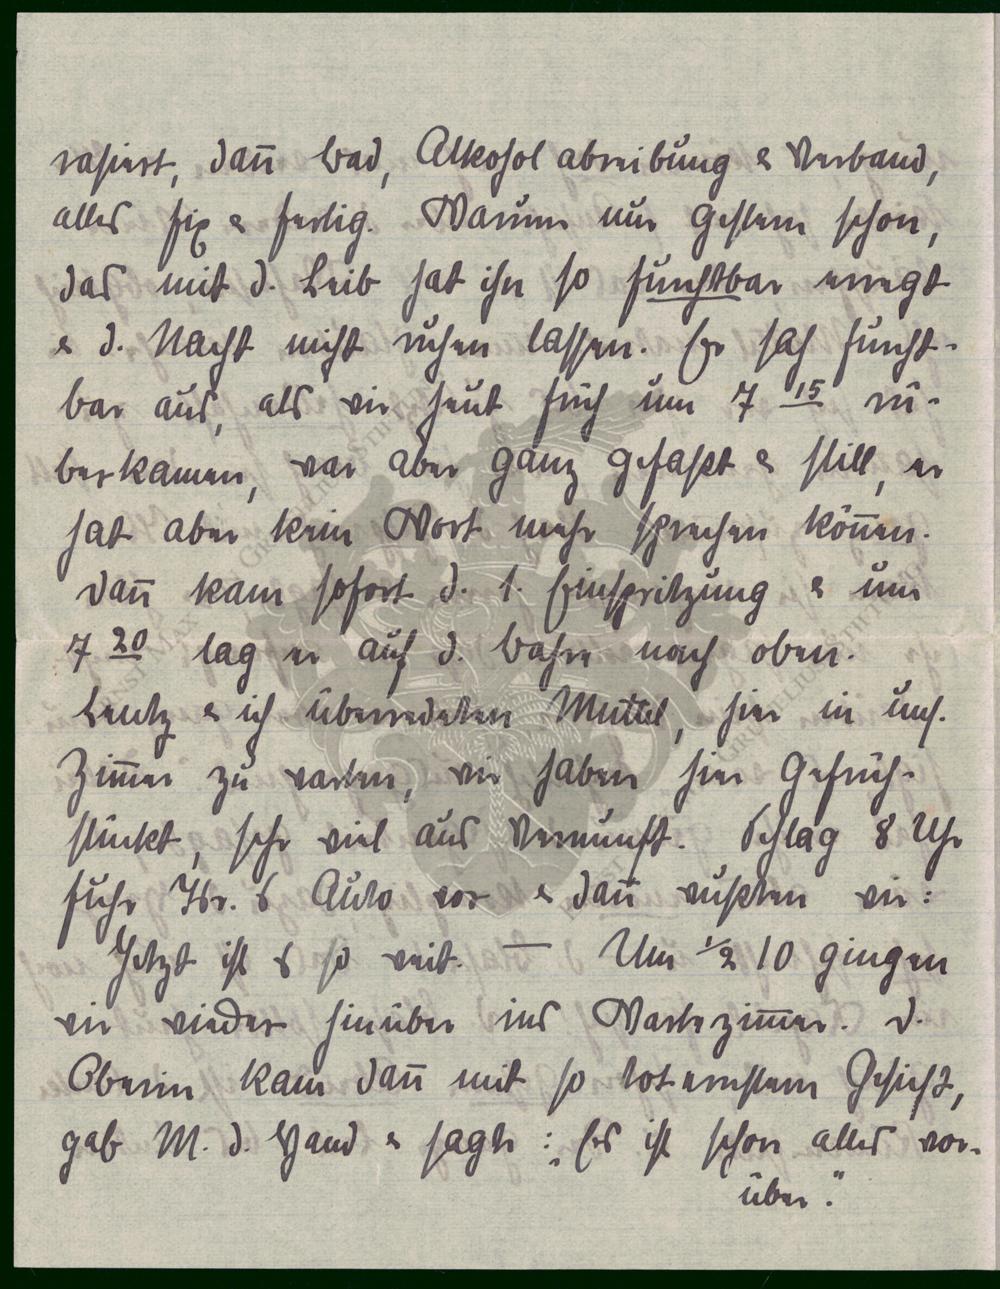 rasiert, dann Bad, Alkohol abreibung & Verband,
alles fix & fertig. Warum nur gestern schon,
das mit d. Leib hat ihn so furchtbar erregt
& d. Nacht nicht ruhen lassen. Er sah furcht-
bar aus, als wir heut früh um 7 15 rü-
berkamen, war aber ganz gefaßt & still, er
hat aber kein Wort mehr sprechen können.
Dann kam sofort d. 1. Einspritzung & um
7 20 lag er auf d. Bahre nach oben.
Lentz & ich überredeten Muttel, hier in uns.
Zimmer zu warten, wir haben hier Gefrüh-
stückt, sehr viel aus Vernunft. Schlag 8 Uhr
fuhr Auto vor & dann wußten wir:
Jetzt ist es so weit. — Um 1/2 10 gingen
wir wieder hinüber ins Wartezimmer. D.
Oberin kam dann mit so toternstem Gesicht,
gab M. d. Hand & sagte: „Es ist schon alles vor-
über."